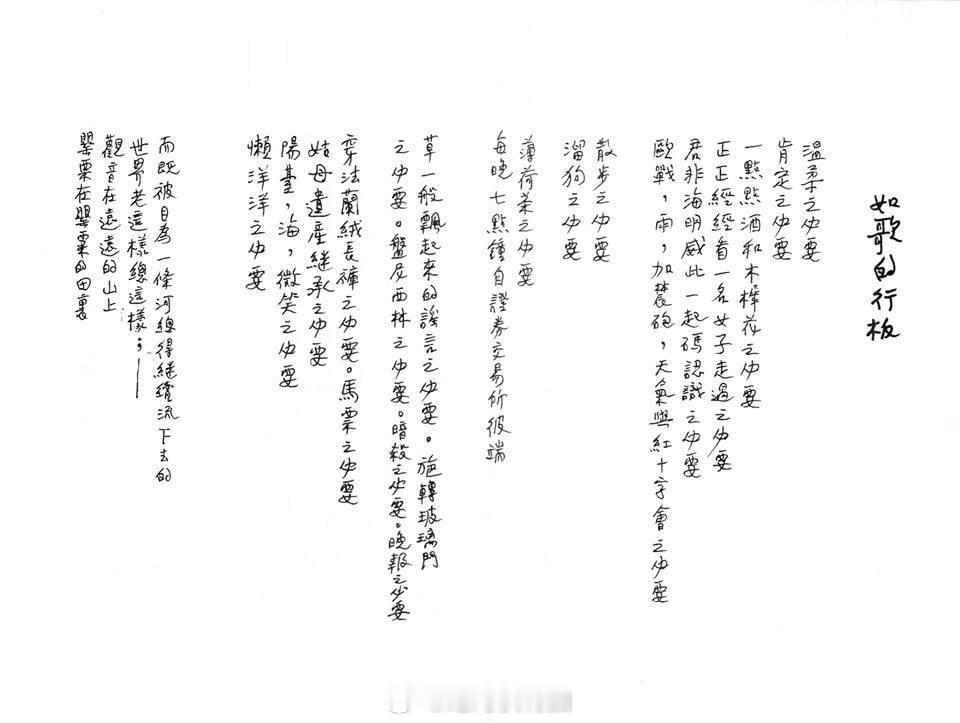 如歌的行板
溫柔之必要
肯定之必要
一點點酒和木樨花之必要
正正經經看一名女子走過之必要
君非海明威此一起碼認識之必要
歐戰，雨，加農砲，天氣與紅十字會之必要
散步之必要
溜狗之必要
薄荷茶之必要
每晚七點鐘自證券交易所彼端
草一般飄起來的謠言之必要。旋轉玻璃門
之必要。盤尼西林之必要。暗殺之必要。晚報之必要
穿法蘭絨長褲之必要。馬票之必要
姑母遺產繼承之必要
陽臺，海，微笑之必要
懶洋洋之必要
而既被目為一條河總得繼續流下去的
世界老這樣總這樣：——
觀音在遠遠的山上
罌粟在罌粟的田裏